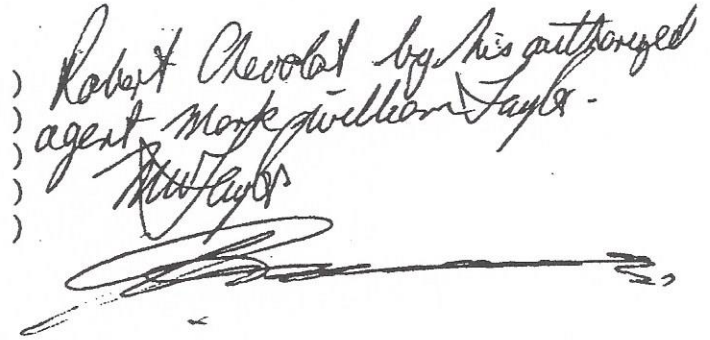 ) Robert Chevolat by his authorized
) agent Mark William Taylor.
) MWTaylor
)
)